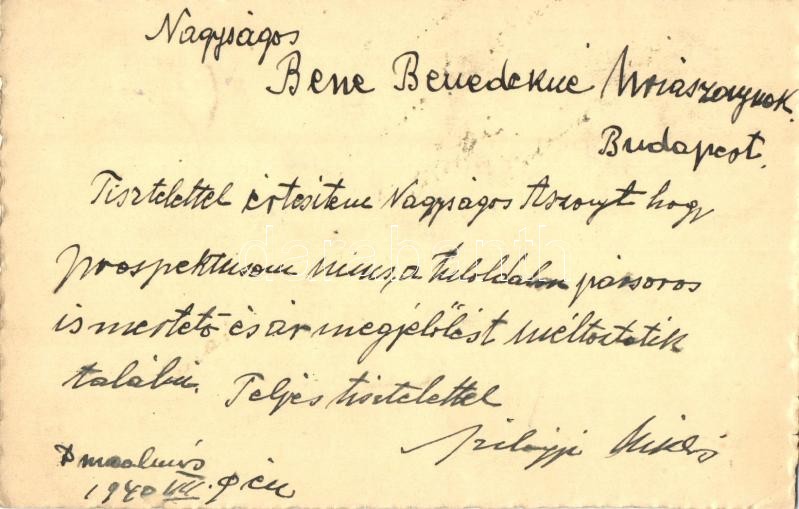 Nagyságos
Bene Benedekné Úriászonynok.
Budapest.
Tisztelettel értesitem Nagyságos Aszonyt hogy
prospektusom nincs, a tuloldalon pársoros
ismertető és ár megjelölést méltoztatik
találni. Teljes tisztelettel
Szilágyi Miklós
1940 VII. 9 én